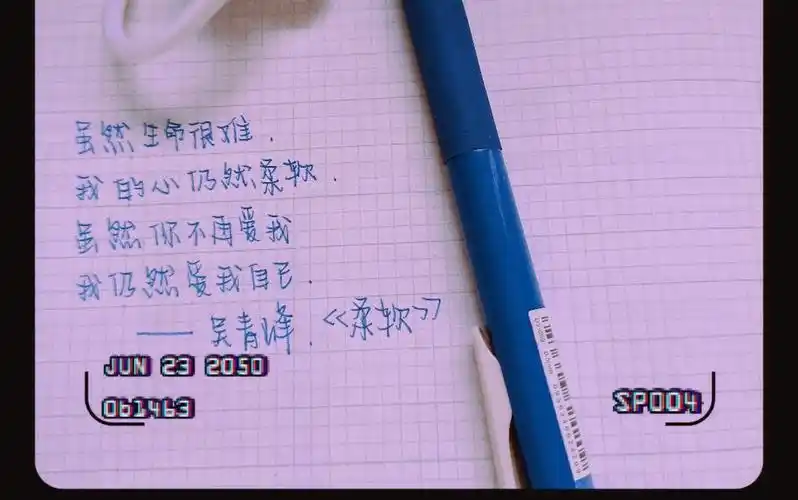 虽然生命很难.
我的心仍然柔软.
虽然你不再爱我
我仍然爱我自己.
——吴青峰.《柔软》
JUN 23 2050
061463
SP004